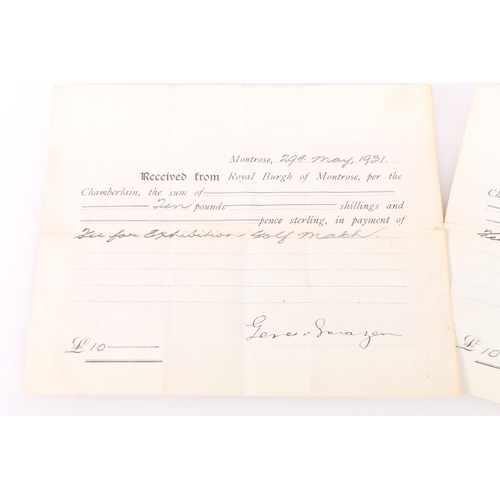 Montrose, 29th May, 1931.
Received from Royal Burgh of Montrose, per the
Chamberlain, the sum of
Ten pounds shillings and
pence sterling, in payment of
Fee for Exhibition Golf Match.
Gene Sarazen
£ 10
£ 10